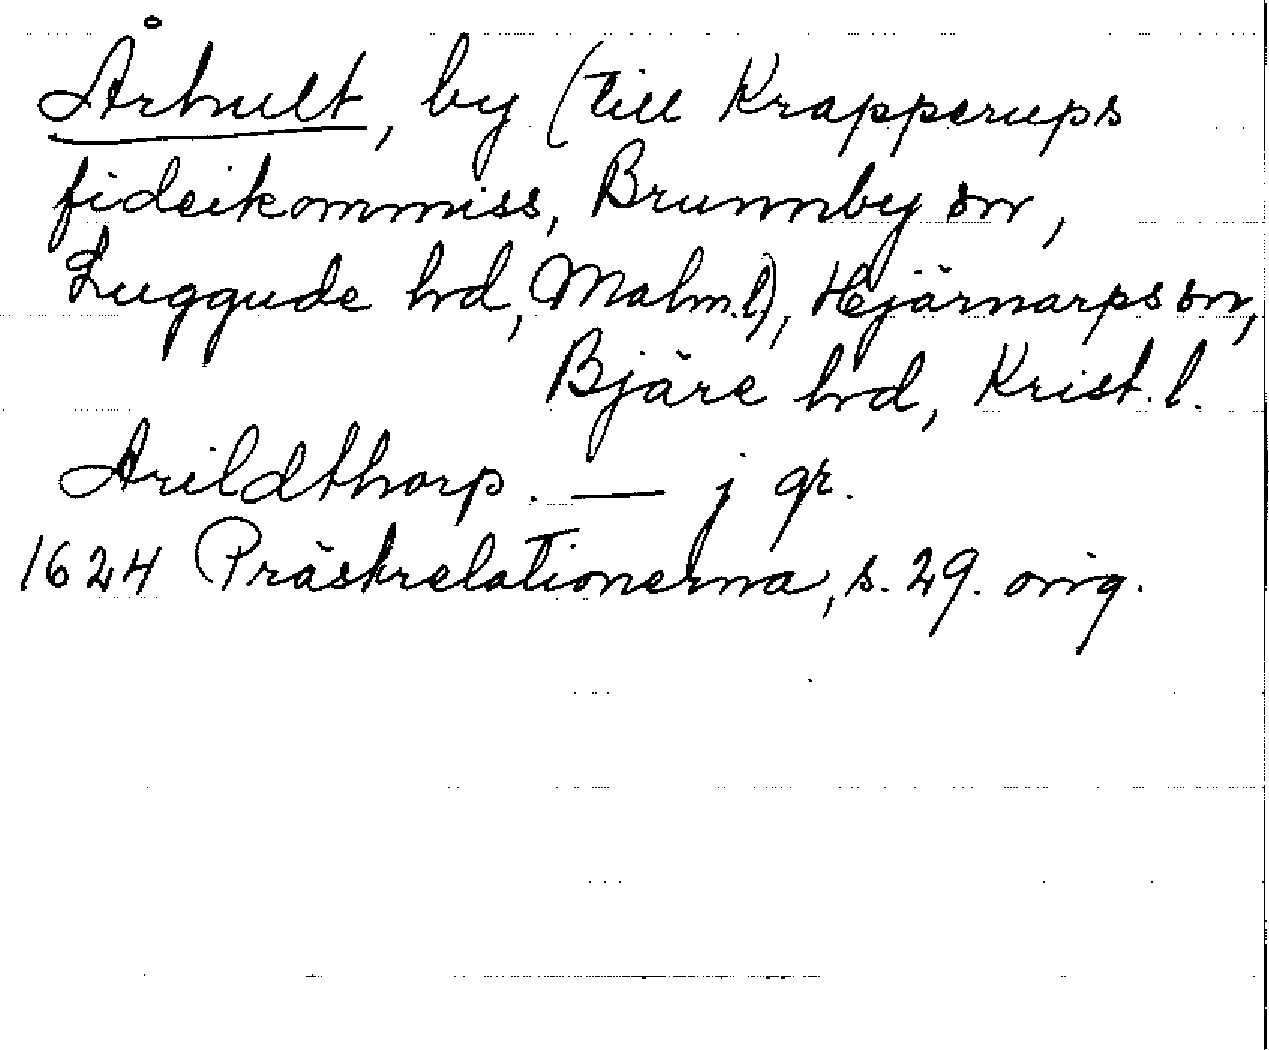 Århult, by (till Krapperups
fideikommiss, Brunnby sn,
Luggude hd, Malm.l), Hjärnarps sn,
Bjäre hd, Krist. l.
Arildthorp. — j gr.
1624 Prästrelationerna, s. 29. orig.